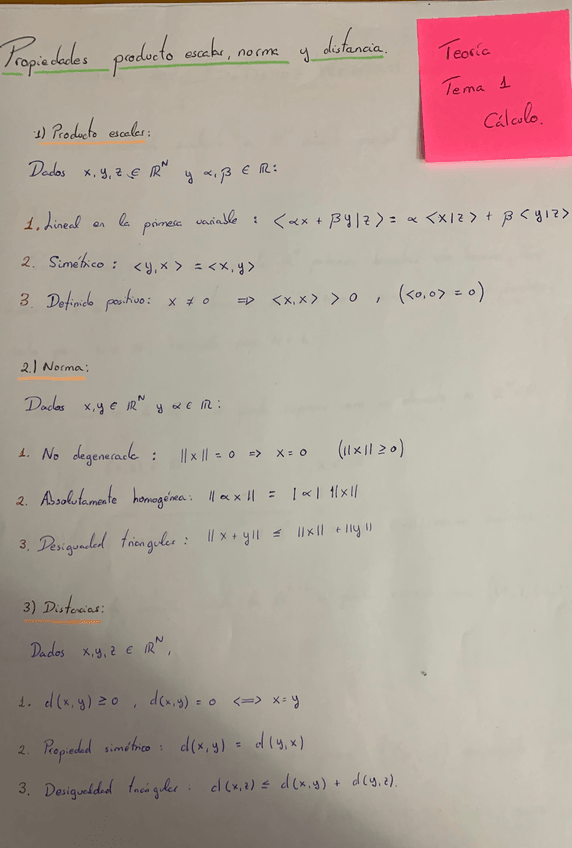 Propiedades producto escalar, norma y distancia.
Teoría
Tema 1
Cálculo.
1) Producto escalar:
Dados x, y, z ∈ ℝᴺ y α, β ∈ ℝ:
1. Lineal en la primera variable : <αx + βy|z> = α <x|z> + β <y|z>
2. Simétrico : <y,x> = <x,y>
3. Definido positivo: x ≠ 0 => <x,x> > 0 , (<0,0> = 0)
2.) Norma:
Dados x,y ∈ ℝᴺ y α ∈ ℝ:
1. No degenerada : ||x|| = 0 => x = 0 (||x|| ≥ 0)
2. Absolutamente homogénea: ||αx|| = |α| ||x||
3. Desigualdad triangular : ||x + y|| ≤ ||x|| + ||y||
3) Distancias:
Dados x,y,z ∈ ℝᴺ,
1. d(x,y) ≥ 0 , d(x,y) = 0 <=> x = y
2. Propiedad simétrica : d(x,y) = d(y,x)
3. Desigualdad triangular : d(x,z) ≤ d(x,y) + d(y,z).